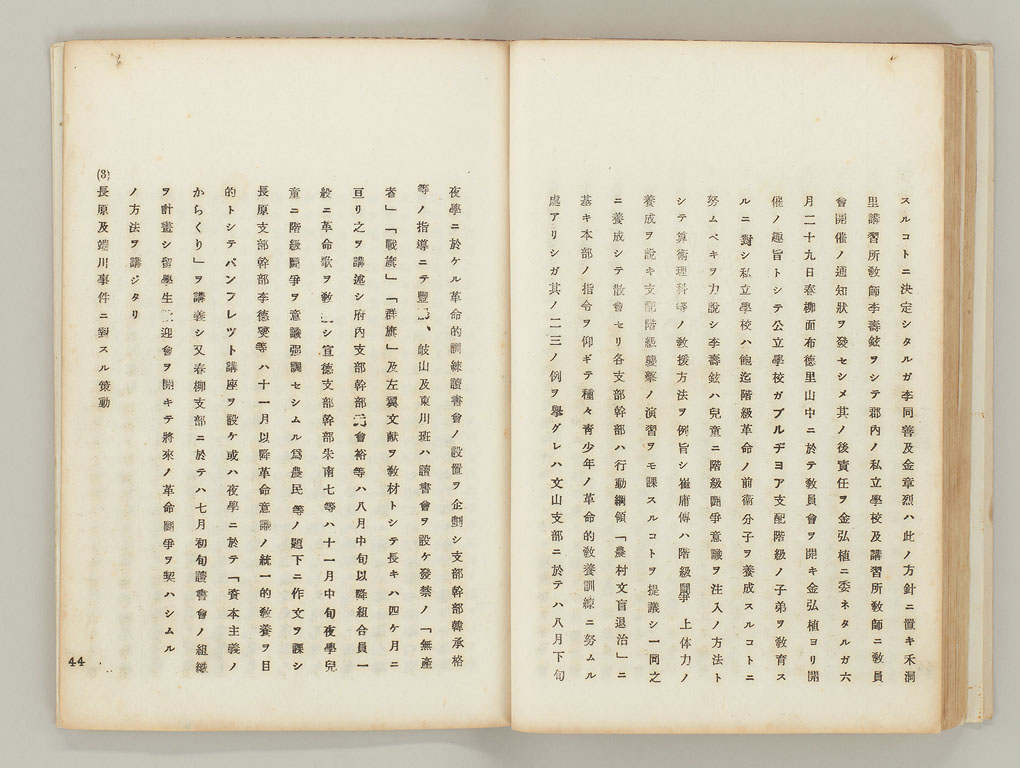 スルコトニ決定シタルガ李同善及金章烈ハ此ノ方針ニ置キ禾洞
里講習所敎師李壽鉉ヲシテ郡内ノ私立學校及講習所敎師ニ敎員
會開催ノ通知狀ヲ發セシメ其ノ後責任ヲ金弘植ニ委ネタルガ六
月二十九日春柳面布德里山中ニ於テ敎員會ヲ開キ金弘植ヨリ開
催ノ趣旨トシテ公立學校ガブルヂヨア支配階級ノ子弟ヲ敎育ス
ルニ對シ私立學校ハ飽迄階級革命ノ前衛分子ヲ養成スルコトニ
努ムベキヲ力說シ李壽鉉ハ兒童ニ階級鬪爭意識ヲ注入ノ方法ト
シテ算術理科等ノ敎援方法ヲ例旨シ崔庸傅ハ階級鬪爭 上体力ノ
養成ヲ說キ支配階級襲擊ノ演習ヲモ課スルコトヲ提議シ一同之
ニ養成シテ散會セリ各支部幹部ハ行動綱領「農村文盲退治」ニ
基キ本部ノ指令ヲ仰ギテ種々靑少年ノ革命的敎養訓練ニ努ムル
處アリシガ其ノ二三ノ例ヲ擧グレハ文山支部ニ於テハ八月下旬
夜學ニ於ケル革命的訓練讀書會ノ設置ヲ企劃シ支部幹部韓承格
等ノ指導ニテ豐、岐山及東川班ハ讀書會ヲ設ケ發禁ノ「無產
者」「戰旗」「群旗」及左翼文獻ヲ敎材トシテ長キハ四ケ月ニ
亘リ之ヲ講述シ府内支部幹部元會裕等ハ八月中旬以降組合員一
般ニ革命歌ヲ敎シ宣德支部幹部朱南七等ハ十一月中旬夜學兒
童ニ階級鬪爭ヲ意識强調セシムル爲農民等ノ題下ニ作文ヲ課シ
長原支部幹部李德燮等ハ十一月以降革命意識ノ統一的敎養ヲ目
的トシテパンフレツト講座ヲ設ケ或ハ夜學ニ於テ「資本主義ノ
からくり」ヲ講義シ又春柳支部ニ於テハ七月初旬讀書會ノ組織
ヲ計畫シ留學生迎會ヲ開キテ將來ノ革命鬪爭ヲ契ハシムル
ノ方法ヲ講ジタリ
(3) 長原及端川事件ニ對スル策動
44